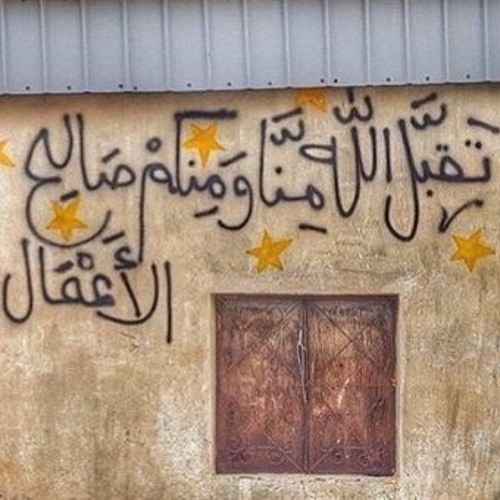 تقبَّل اللَّه مِنَّا وَمِنكُمْ صَالِح
الأَعْمَال